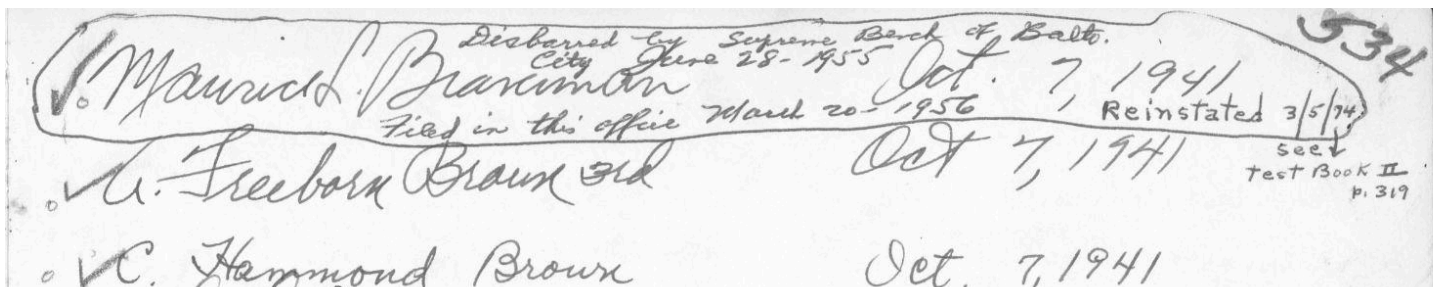 534
Disbarred by Supreme Bench of Balto.
City June 28 - 1955
Maurice L. Braverman Oct. 7, 1941
Filed in this office March 20 - 1956 Reinstated 3/5/74
see ↓
test Book II
p. 319
A. Freeborn Brown 3rd Oct 7, 1941
C. Hammond Brown Oct. 7, 1941